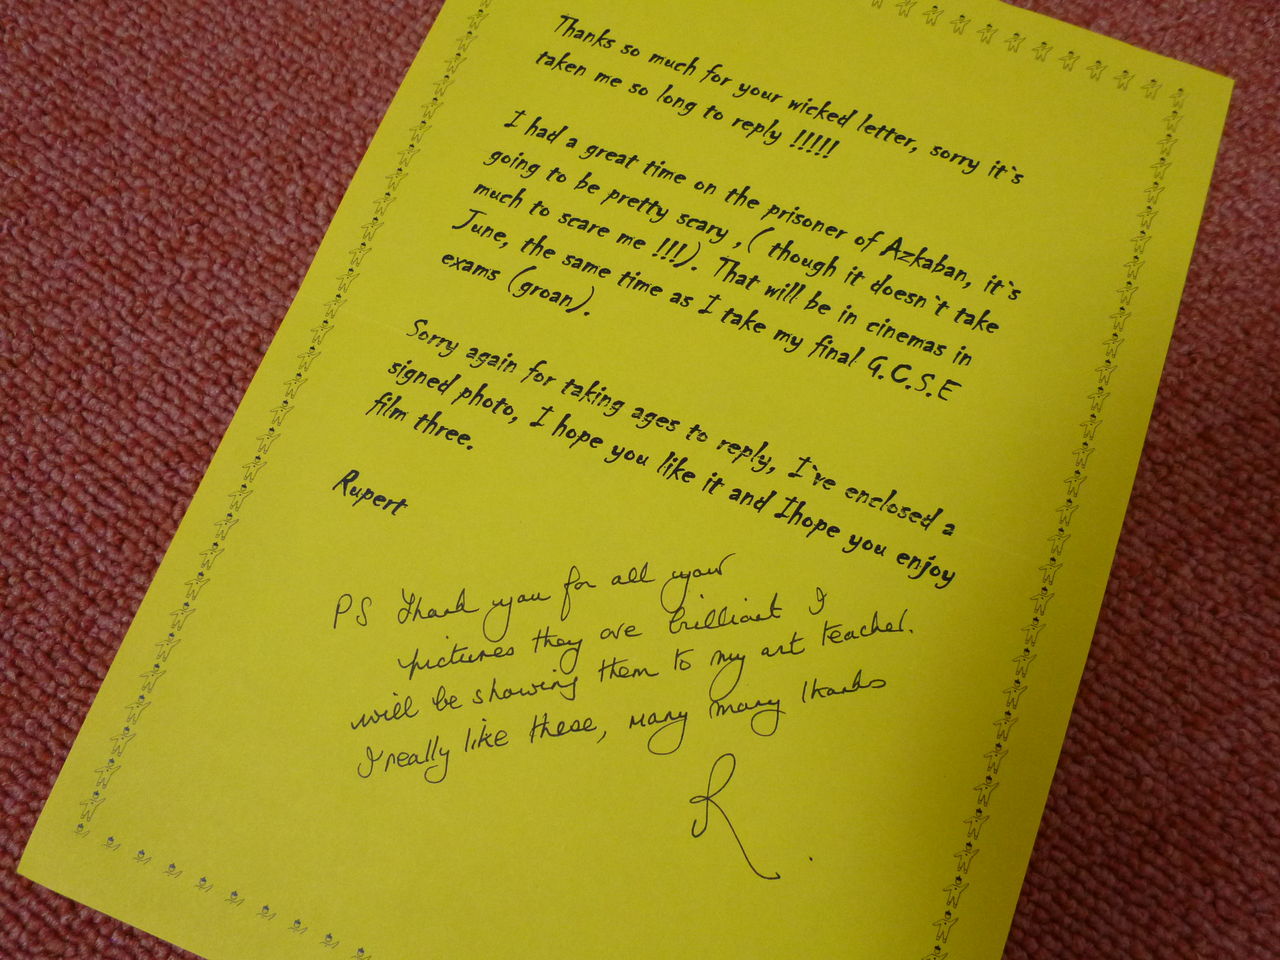 Thanks so much for your wicked letter, sorry it`s
taken me so long to reply !!!!!
I had a great time on the prisoner of Azkaban, it`s
going to be pretty scary , ( though it doesn`t take
much to scare me !!!). That will be in cinemas in
June, the same time as I take my final G.C.S.E
exams (groan).
Sorry again for taking ages to reply, I`ve enclosed a
signed photo, I hope you like it and Ihope you enjoy
film three.
Rupert
PS Thank you for all your
pictures they are brilliant I
will be showing them to my art teacher.
I really like these, many many thanks
R.